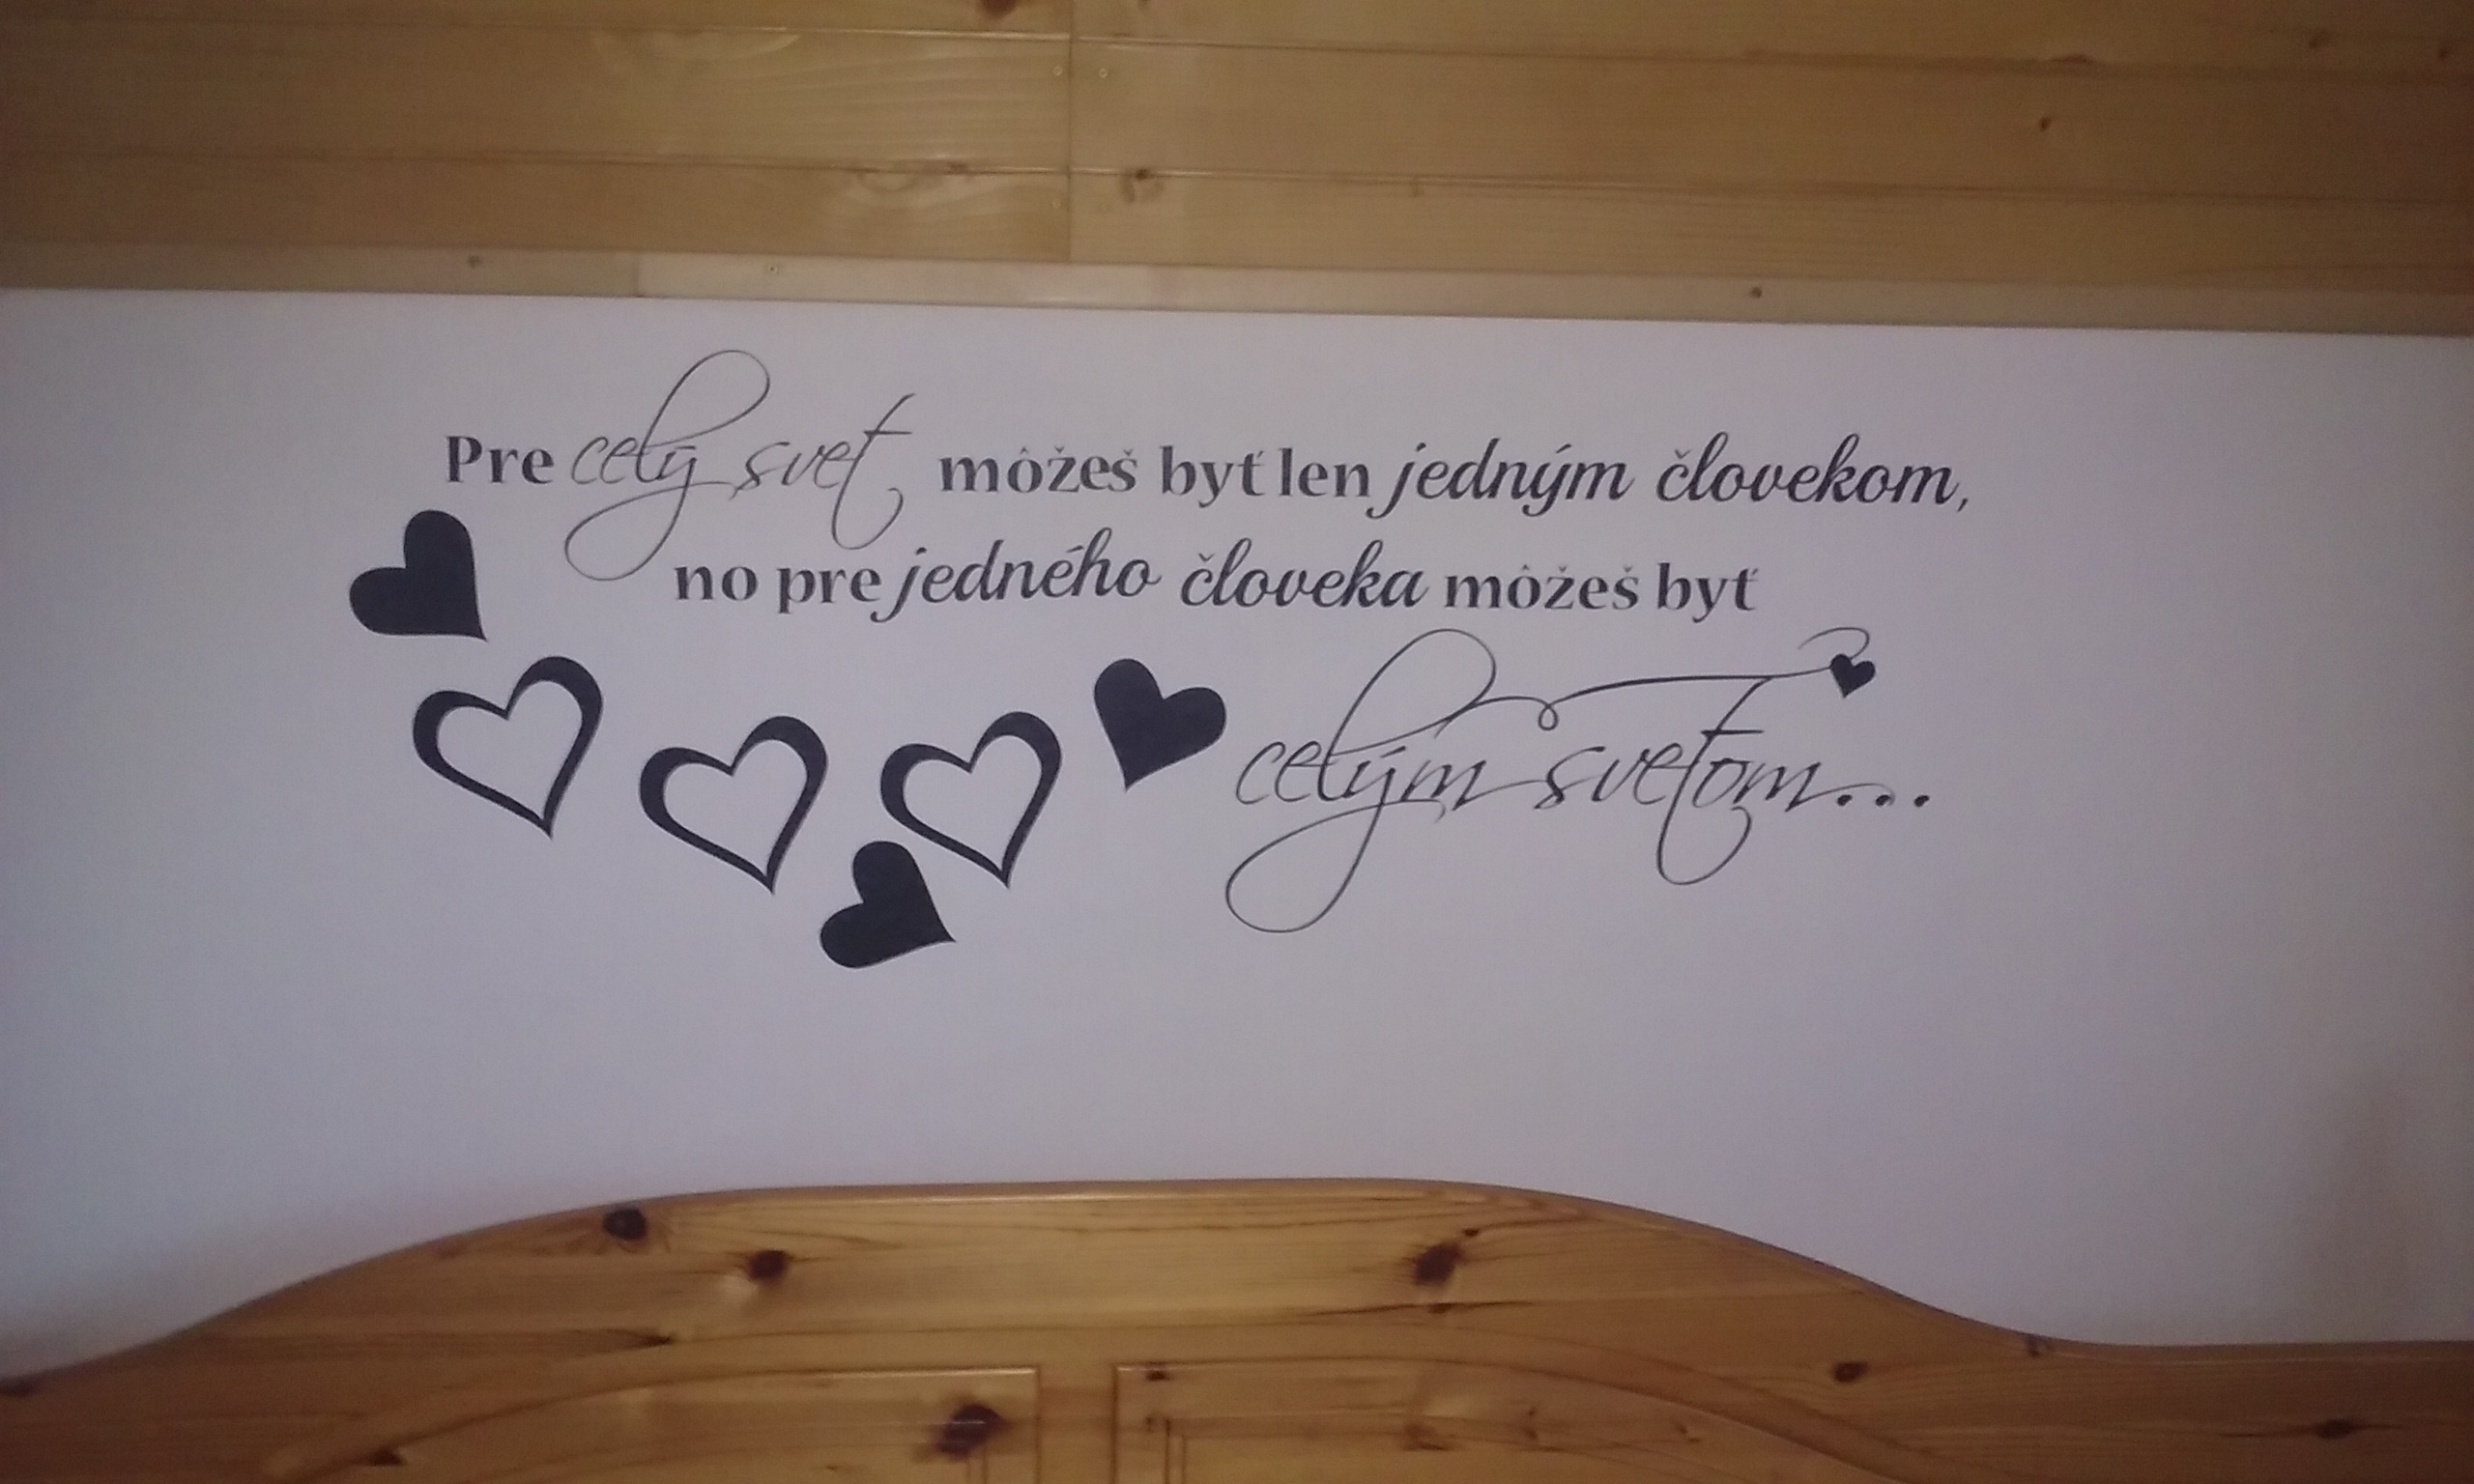 Pre celý svet môžeš byť len jedným človekom,
no pre jedného človeka môžeš byť
celým svetom...